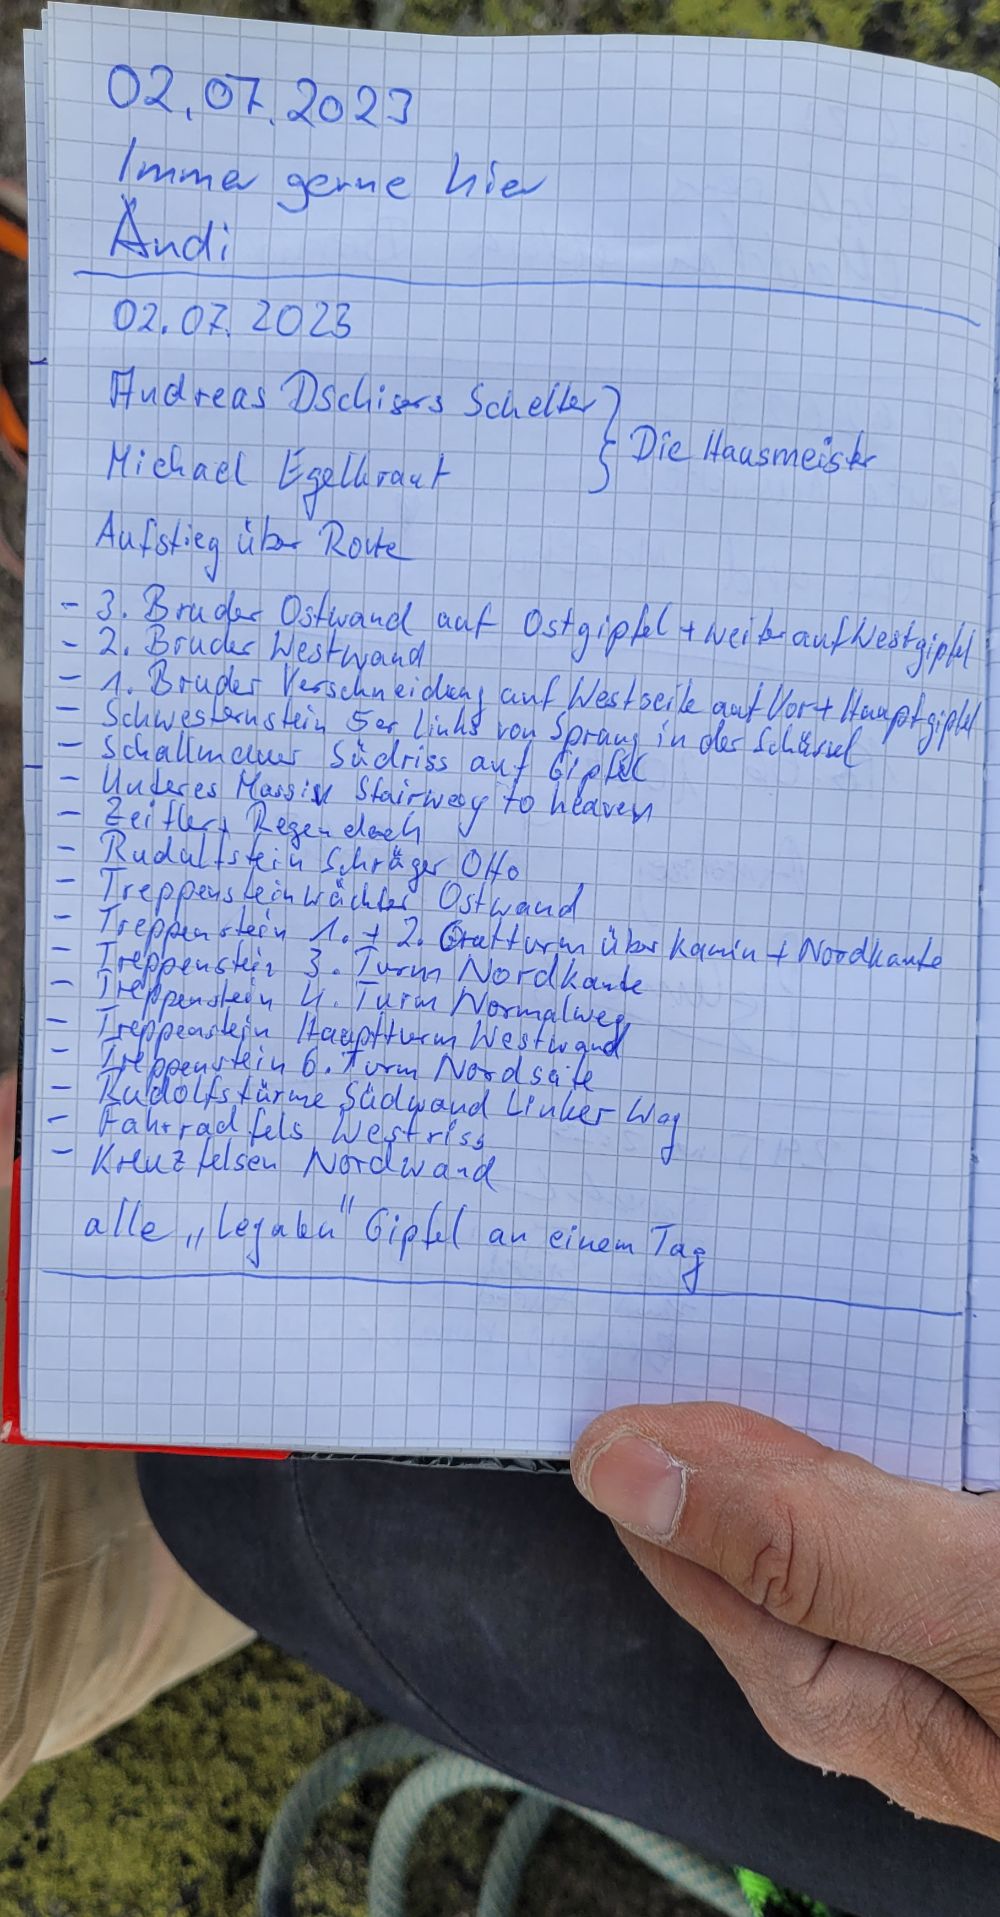 02.07.2023
Immer gerne hier
Andi
02.07.2023
Andreas Dschisers Schelter } Die Hausmeister
Michael Egelkraut
Aufstieg über Route
- 3. Bruder Ostwand auf Ostgipfel + weiter auf Westgipfel
- 2. Bruder Westwand
- 1. Bruder Verschneidung auf Westseite auf Vor + Hauptgipfel
- Schwesternstein 5er Links von Sprung in der Schüssel
- Schallmauer Südriss auf Gipfel
- Unteres Massiv Stairway to heaven
- Zeitler Regendach
- Rudolfstein Schräger Otto
- Treppensteinwächter Ostwand
- Treppenstein 1. + 2. Gratturm über Kamin + Nordkante
- Treppenstein 3. Turm Nordkante
- Treppenstein 4. Turm Normalweg
- Treppenstein Hauptturm Westwand
- Treppenstein 6. Turm Nordseite
- Rudolfstürme Südwand Linker Weg
- Fahrradfels Westriss
- Kreuzfelsen Nordwand
alle „legalen" Gipfel an einem Tag